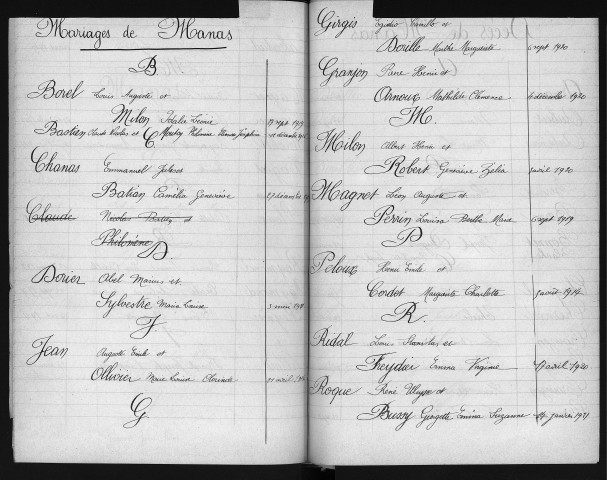 Mariages de Manas
B.
Borel Louis Auguste et
Milon Idalie Léonie 27 sept 1919
Bastien Claude Nicolas et C Philomène
Chanas Emmanuel Jules et
Batian Camélia Geneviève 27 décembre
Claude Nicolas Bastien et
Philomène D.
Dorier Abel Marius et
Sylvestre Marie Louise 3 mai
J.
Jean Auguste Emile et
Ollivier Marie Louise Clorinde avril
G
Girgis Camille et
Doville Marthe Marguerite 6 sept 1920
Granjon Henri et
Arnoux Mathilde Clémence 4 décembre 1920
M.
Milon Albert Henri et
Robert Germaine Zélia avril 1920
Magnet Léon Auguste et
Perrin Louisa Berthe Maria 6 sept 1919
P
Poloux Henri Emile et
Cordot Marguerite Charlotte août 1914
R.
Rudal Louis Stanislas et
Freydier Emma Virginie 17 avril 1920
Roque René Ulysse et
Bussy Georgette Emma Suzanne janvier 1921